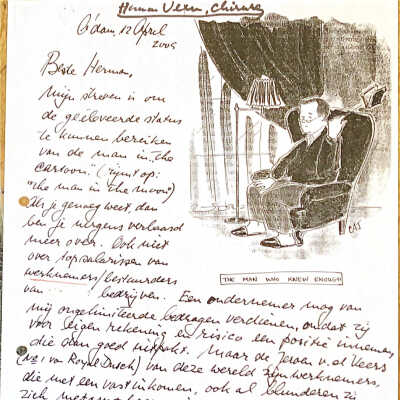 Herman Vexn, Chirurg
A'dam, 12 April
2009
Beste Herman,
Mijn streven is om
de geëloveerde status
te kunnen bereiken
van de man in "the
cartoon". (rijmt op:
"the man in the moon")
Als je genoeg weet, dan
ben je nergens verbaasd
meer over. Ook niet
over topsalarissen van
werknemers/bestuurders
van ... bedrijven. Een ondernemer mag van
mij ongelimiteerde bedragen verdienen, omdat zij
voor eigen rekening en risico een positie innemen,
die dan goed uitpakt. Maar de Jeroen v.d. Veers
(van Royal Dutch) van deze wereld zijn werknemers,
die met een vast inkomen, ook al blunderen zij
zich
CAS
THE MAN WHO KNEW ENOUGH